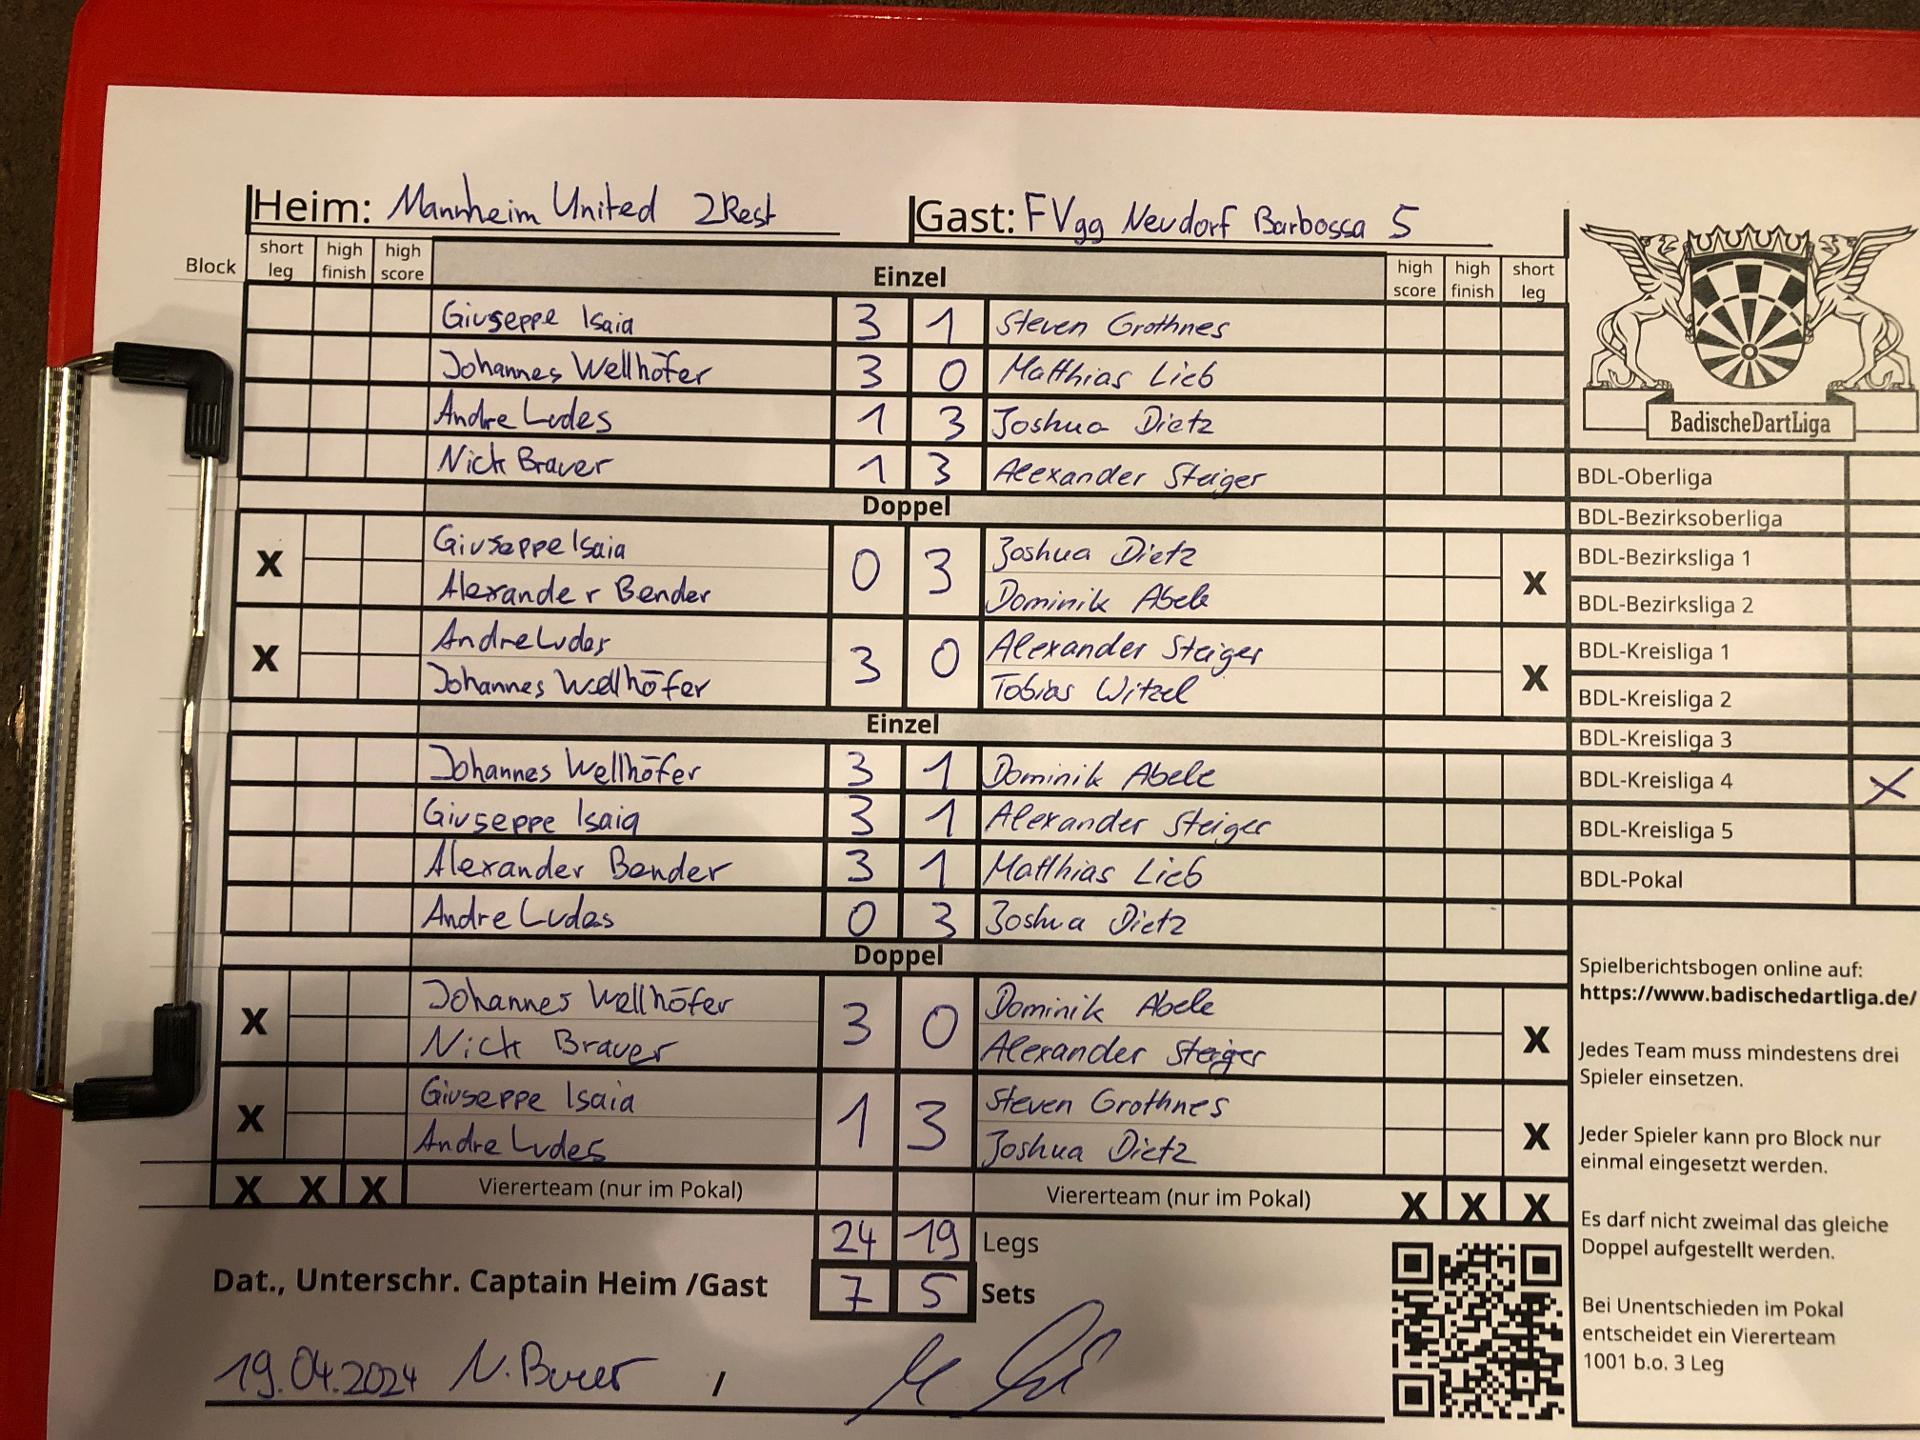 Heim: Mannheim United 2Rest Gast: FVgg Neudorf Barbossa 5
Block short leg high finish high score Einzel high score high finish short leg
Giuseppe Isaia 3 1 Steven Grothnes
Johannes Wellhöfer 3 0 Matthias Lieb
Andre Ludes 1 3 Joshua Dietz
Nick Brauer 1 3 Alexander Steiger
Doppel
X Giuseppe Isaia 0 3 Joshua Dietz X
Alexander Bender Dominik Abele
X Andre Ludes 3 0 Alexander Steiger X
Johannes Wellhöfer Tobias Witzel
Einzel
Johannes Wellhöfer 3 1 Dominik Abele
Giuseppe Isaia 3 1 Alexander Steiger
Alexander Bender 3 1 Matthias Lieb
Andre Ludes 0 3 Joshua Dietz
Doppel
X Johannes Wellhöfer 3 0 Dominik Abele X
Nick Brauer Alexander Steiger
X Giuseppe Isaia 1 3 Steven Grothnes X
Andre Ludes Joshua Dietz
X X X Viererteam (nur im Pokal) Viererteam (nur im Pokal) X X X
24 19 Legs
Dat., Unterschr. Captain Heim /Gast 7 5 Sets
19.04.2024 /
BadischeDartLiga
BDL-Oberliga
BDL-Bezirksoberliga
BDL-Bezirksliga 1
BDL-Bezirksliga 2
BDL-Kreisliga 1
BDL-Kreisliga 2
BDL-Kreisliga 3
BDL-Kreisliga 4 X
BDL-Kreisliga 5
BDL-Pokal
Spielberichtsbogen online auf:
https://www.badischedartliga.de/
Jedes Team muss mindestens drei
Spieler einsetzen.
Jeder Spieler kann pro Block nur
einmal eingesetzt werden.
Es darf nicht zweimal das gleiche
Doppel aufgestellt werden.
Bei Unentschieden im Pokal
entscheidet ein Viererteam
1001 b.o. 3 Leg